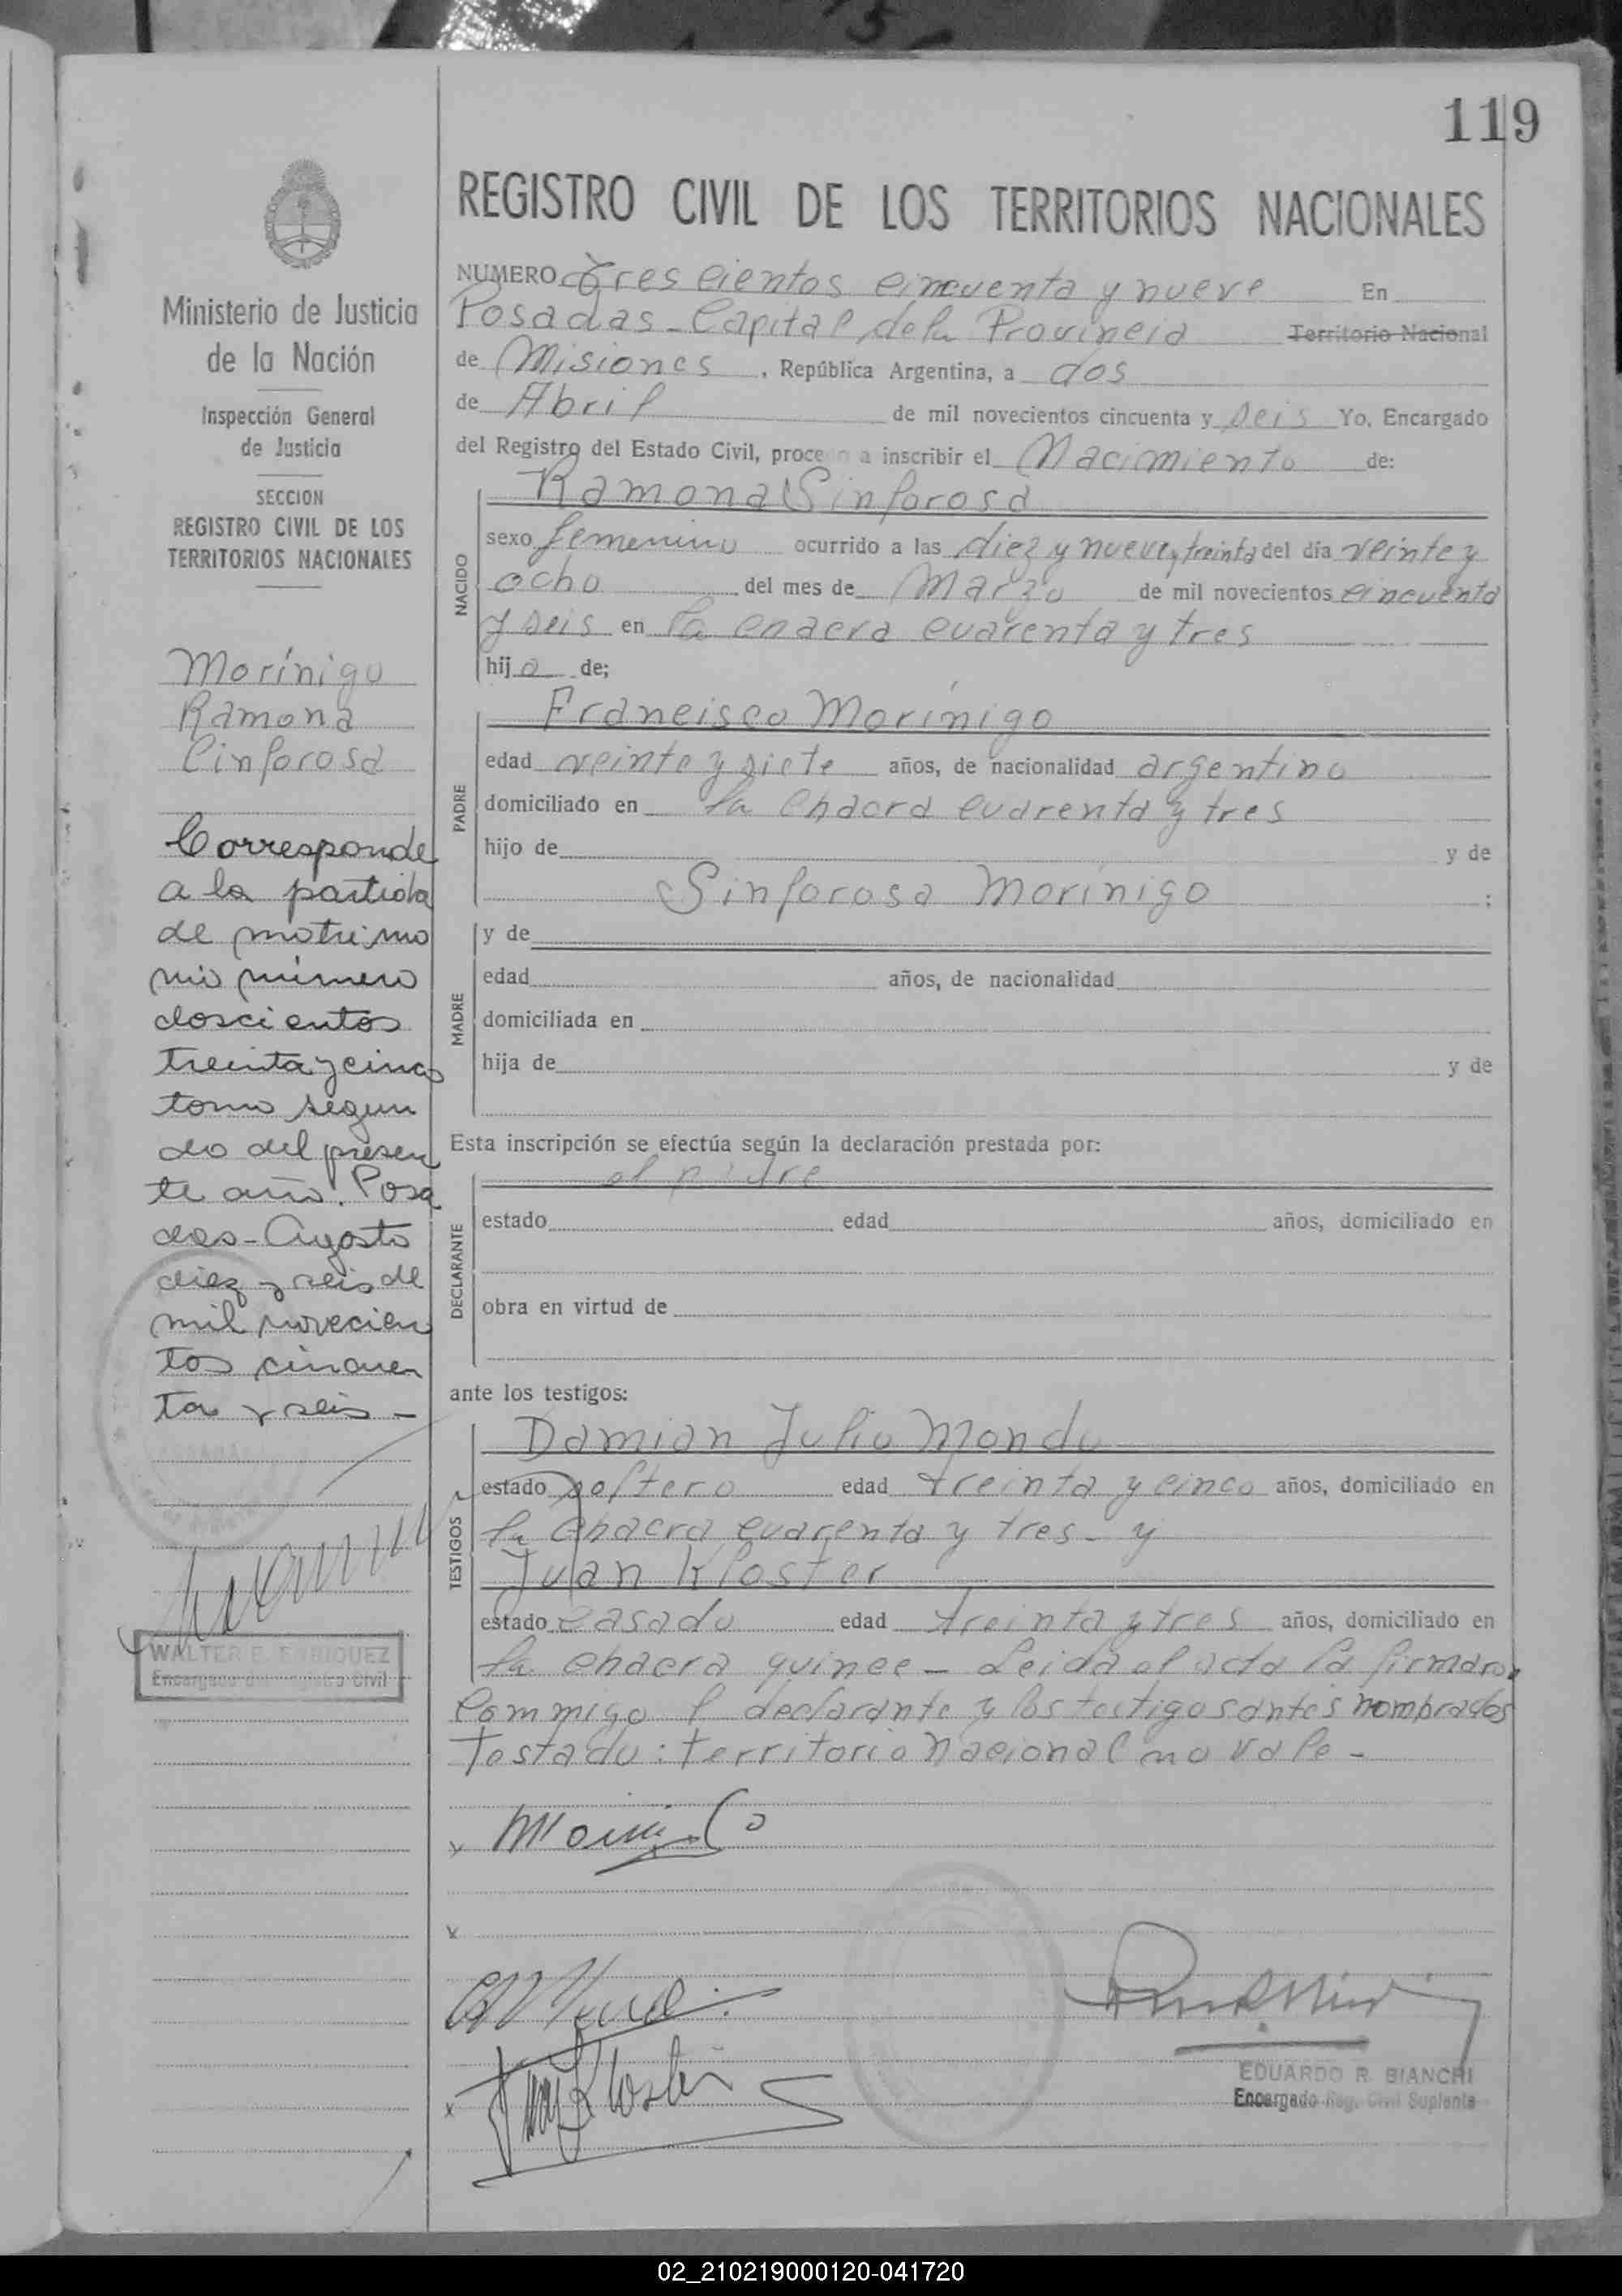 119
REGISTRO CIVIL DE LOS TERRITORIOS NACIONALES
Ministerio de Justicia
de la Nación
Inspección General
de Justicia
SECCION
REGISTRO CIVIL DE LOS
TERRITORIOS NACIONALES
Morínigo
Ramona
Cinforosa
Corresponde
a la partida
de matrimo
nio número
doscientos
treinta y cinco
tomo segun
do del presen
te año. Posa
das - Agosto
diez y seis de
mil novecien
tos cincuen
ta y seis -
WALTER E. ENRIQUEZ
Encargado del Registro Civil
NUMERO Tres cientos cincuenta y nueve En
Posadas - Capital de la Provincia Territorio Nacional
de Misiones, República Argentina, a dos
de Abril de mil novecientos cincuenta y seis Yo, Encargado
del Registro del Estado Civil, procedo a inscribir el Nacimiento de:
NACIDO
Ramona Sinforosa
sexo femenino ocurrido a las diez y nueve y treinta del día veinte y
ocho del mes de Marzo de mil novecientos cincuenta
y seis en la chacra cuarenta y tres
hija de;
PADRE
Francisco Morínigo
edad veinte y siete años, de nacionalidad argentino
domiciliado en la chacra cuarenta y tres
hijo de y de
Sinforosa Morínigo ;
MADRE
y de
edad años, de nacionalidad
domiciliada en
hija de y de
Esta inscripción se efectúa según la declaración prestada por:
DECLARANTE
el padre
estado edad años, domiciliado en
obra en virtud de
ante los testigos:
TESTIGOS
Damian Julio Mondo
estado soltero edad treinta y cinco años, domiciliado en
la chacra cuarenta y tres - y
Juan Kloster
estado casado edad treinta y tres años, domiciliado en
la chacra quince - Leida el acta la firmaron
commigo l declarante y los testigos antes nombrados
Testado: territorio Nacional no vale -
x
x
x Juan Kloster
EDUARDO R. BIANCHI
Encargado Reg. Civil Suplente
02_210219000120-041720